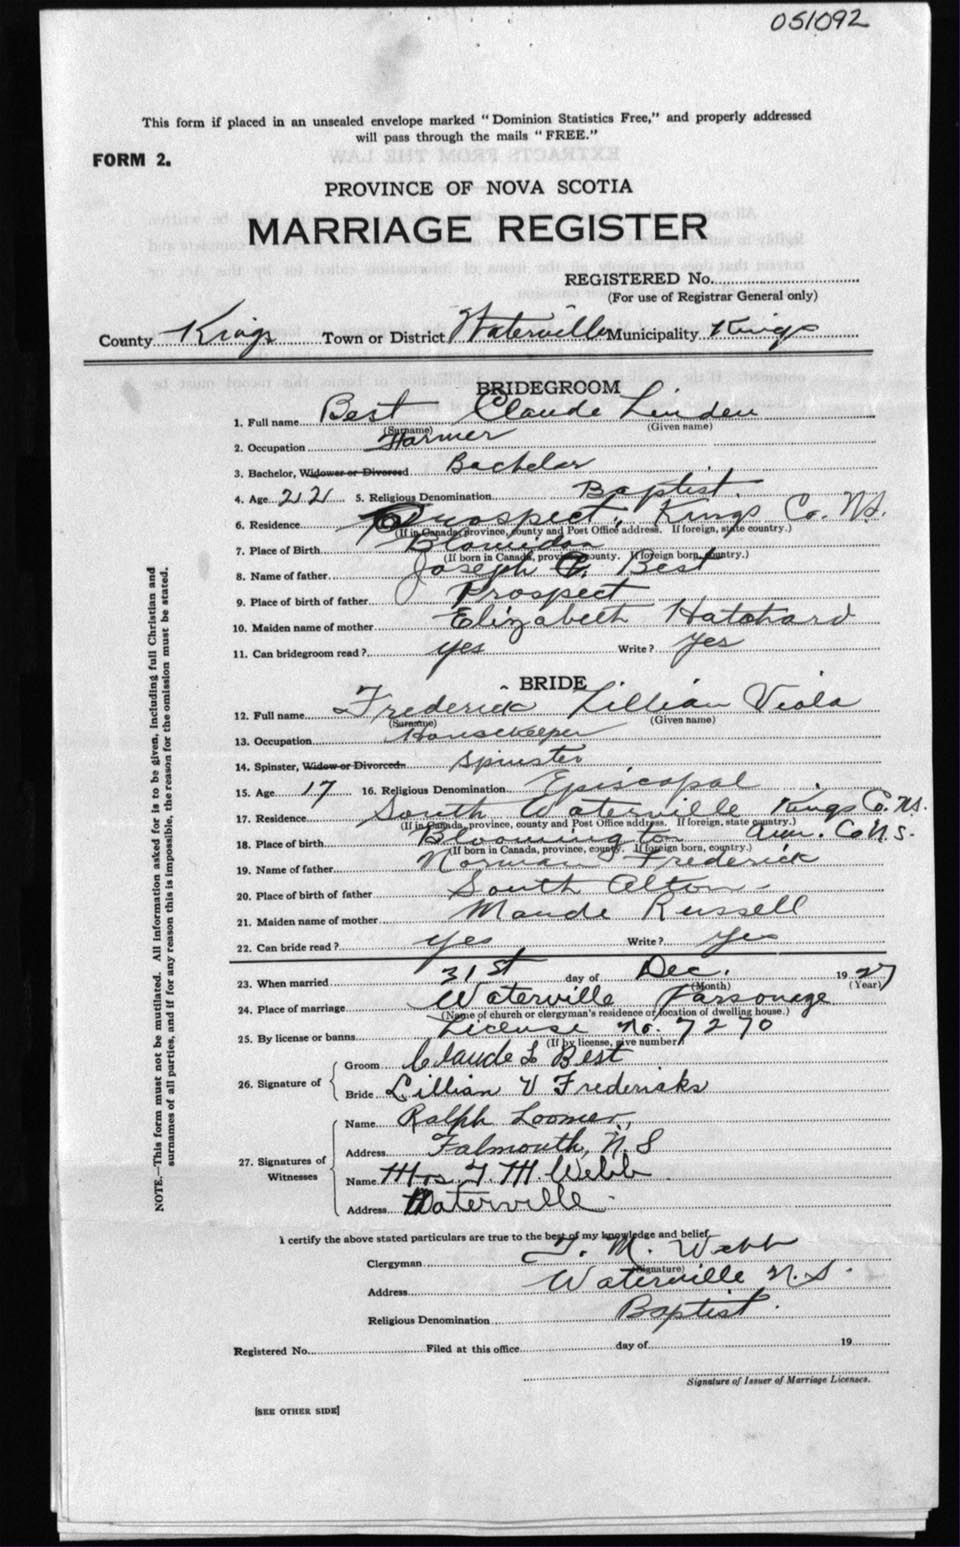 051092
This form if placed in an unsealed envelope marked "Dominion Statistics Free," and properly addressed
will pass through the mails "FREE."
FORM 2.
PROVINCE OF NOVA SCOTIA
MARRIAGE REGISTER
REGISTERED No.
(For use of Registrar General only)
County Kings Town or District Waterville Municipality Kings
BRIDEGROOM
1. Full name Best Claude Linden
(Surname) (Given name)
2. Occupation Farmer
3. Bachelor, Widower or Divorced Bachelor
4. Age 21 5. Religious Denomination Baptist
6. Residence Prospect, Kings Co. N.S.
(If in Canada, province, county and Post Office address. If foreign, state country.)
7. Place of Birth Blomidon
(If born in Canada, province, county. If foreign born, country.)
8. Name of father Joseph Best
9. Place of birth of father Prospect
10. Maiden name of mother Elizabeth Hatchard
11. Can bridegroom read? yes Write? yes
BRIDE
12. Full name Frederick Lillian Viola
(Surname) (Given name)
13. Occupation Housekeeper
14. Spinster, Widow or Divorced Spinster
15. Age 17 16. Religious Denomination Episcopal
17. Residence South Waterville Kings Co. N.S.
(If in Canada, province, county and Post Office address. If foreign, state country.)
18. Place of birth Bloomington Ann. Co N.S.
(If born in Canada, province, county. If foreign born, country.)
19. Name of father Norman Frederick
20. Place of birth of father South Alton
21. Maiden name of mother Maude Russell
22. Can bride read? yes Write? yes
23. When married 31st day of Dec. 1927
(Month) (Year)
24. Place of marriage Waterville Parsonage
(Name of church or clergyman's residence or location of dwelling house.)
25. By license or banns License No. 7270
(If by license, give number)
26. Signature of
Groom Claude L Best
Bride Lillian V Fredericks
27. Signatures of Witnesses
Name Ralph Loomer,
Address Falmouth, N.S
Name Mrs. T. M. Webb
Address Waterville
I certify the above stated particulars are true to the best of my knowledge and belief.
Clergyman T. M. Webb
(Signature)
Address Waterville N.S.
Religious Denomination Baptist.
Registered No. Filed at this office day of 19
Signature of Issuer of Marriage Licenses.
[SEE OTHER SIDE]
NOTE.—This form must not be mutilated. All information asked for is to be given, including full Christian and
surnames of all parties, and if for any reason this is impossible, the reason for the omission must be stated.